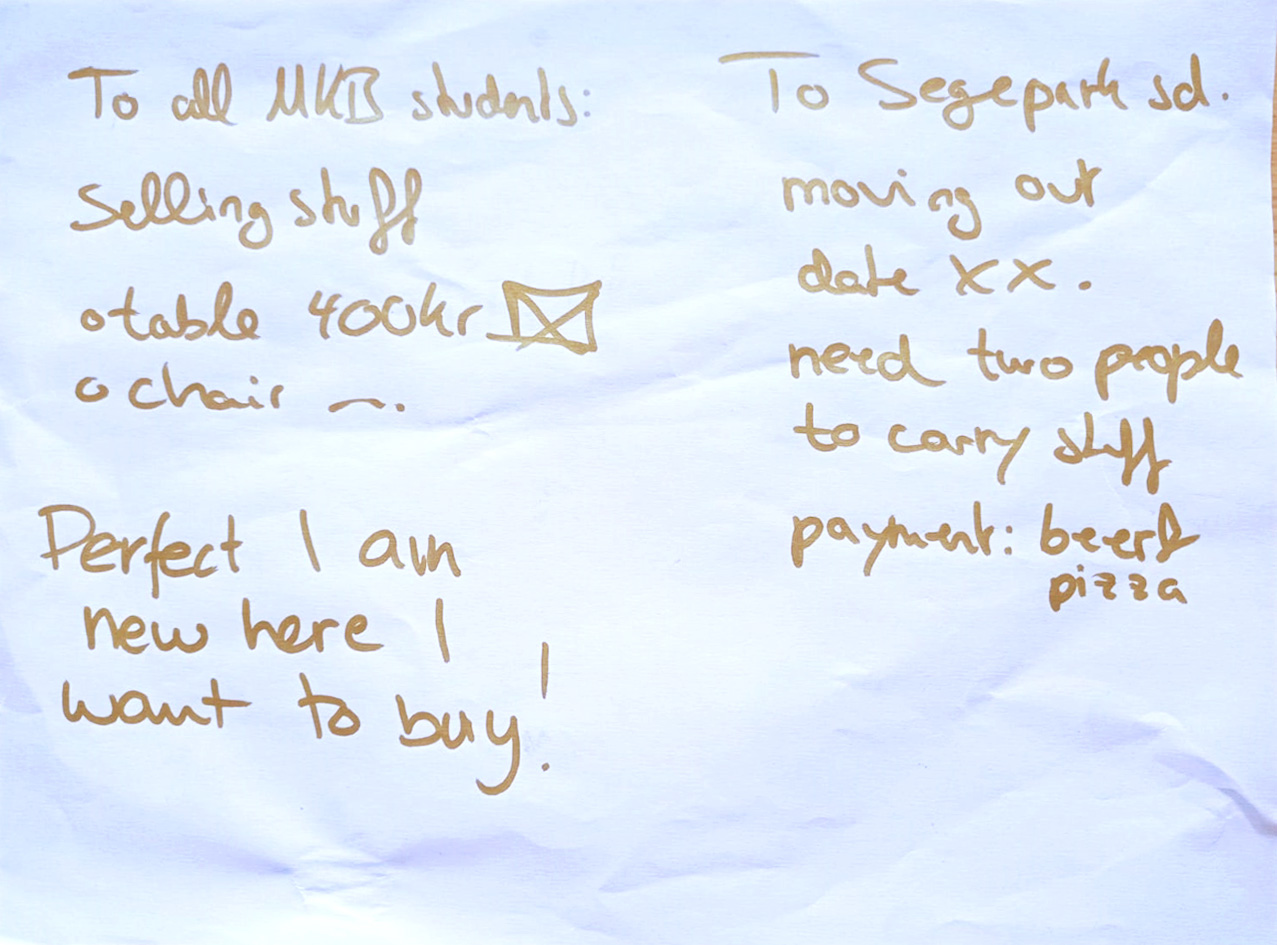 To all MKB students:
Selling stuff
o table 400kr
o chair ~.
Perfect I am
new here I
want to buy!
To Segepark sd.
moving out
date XX.
need two people
to carry stuff
payment: beer &
pizza